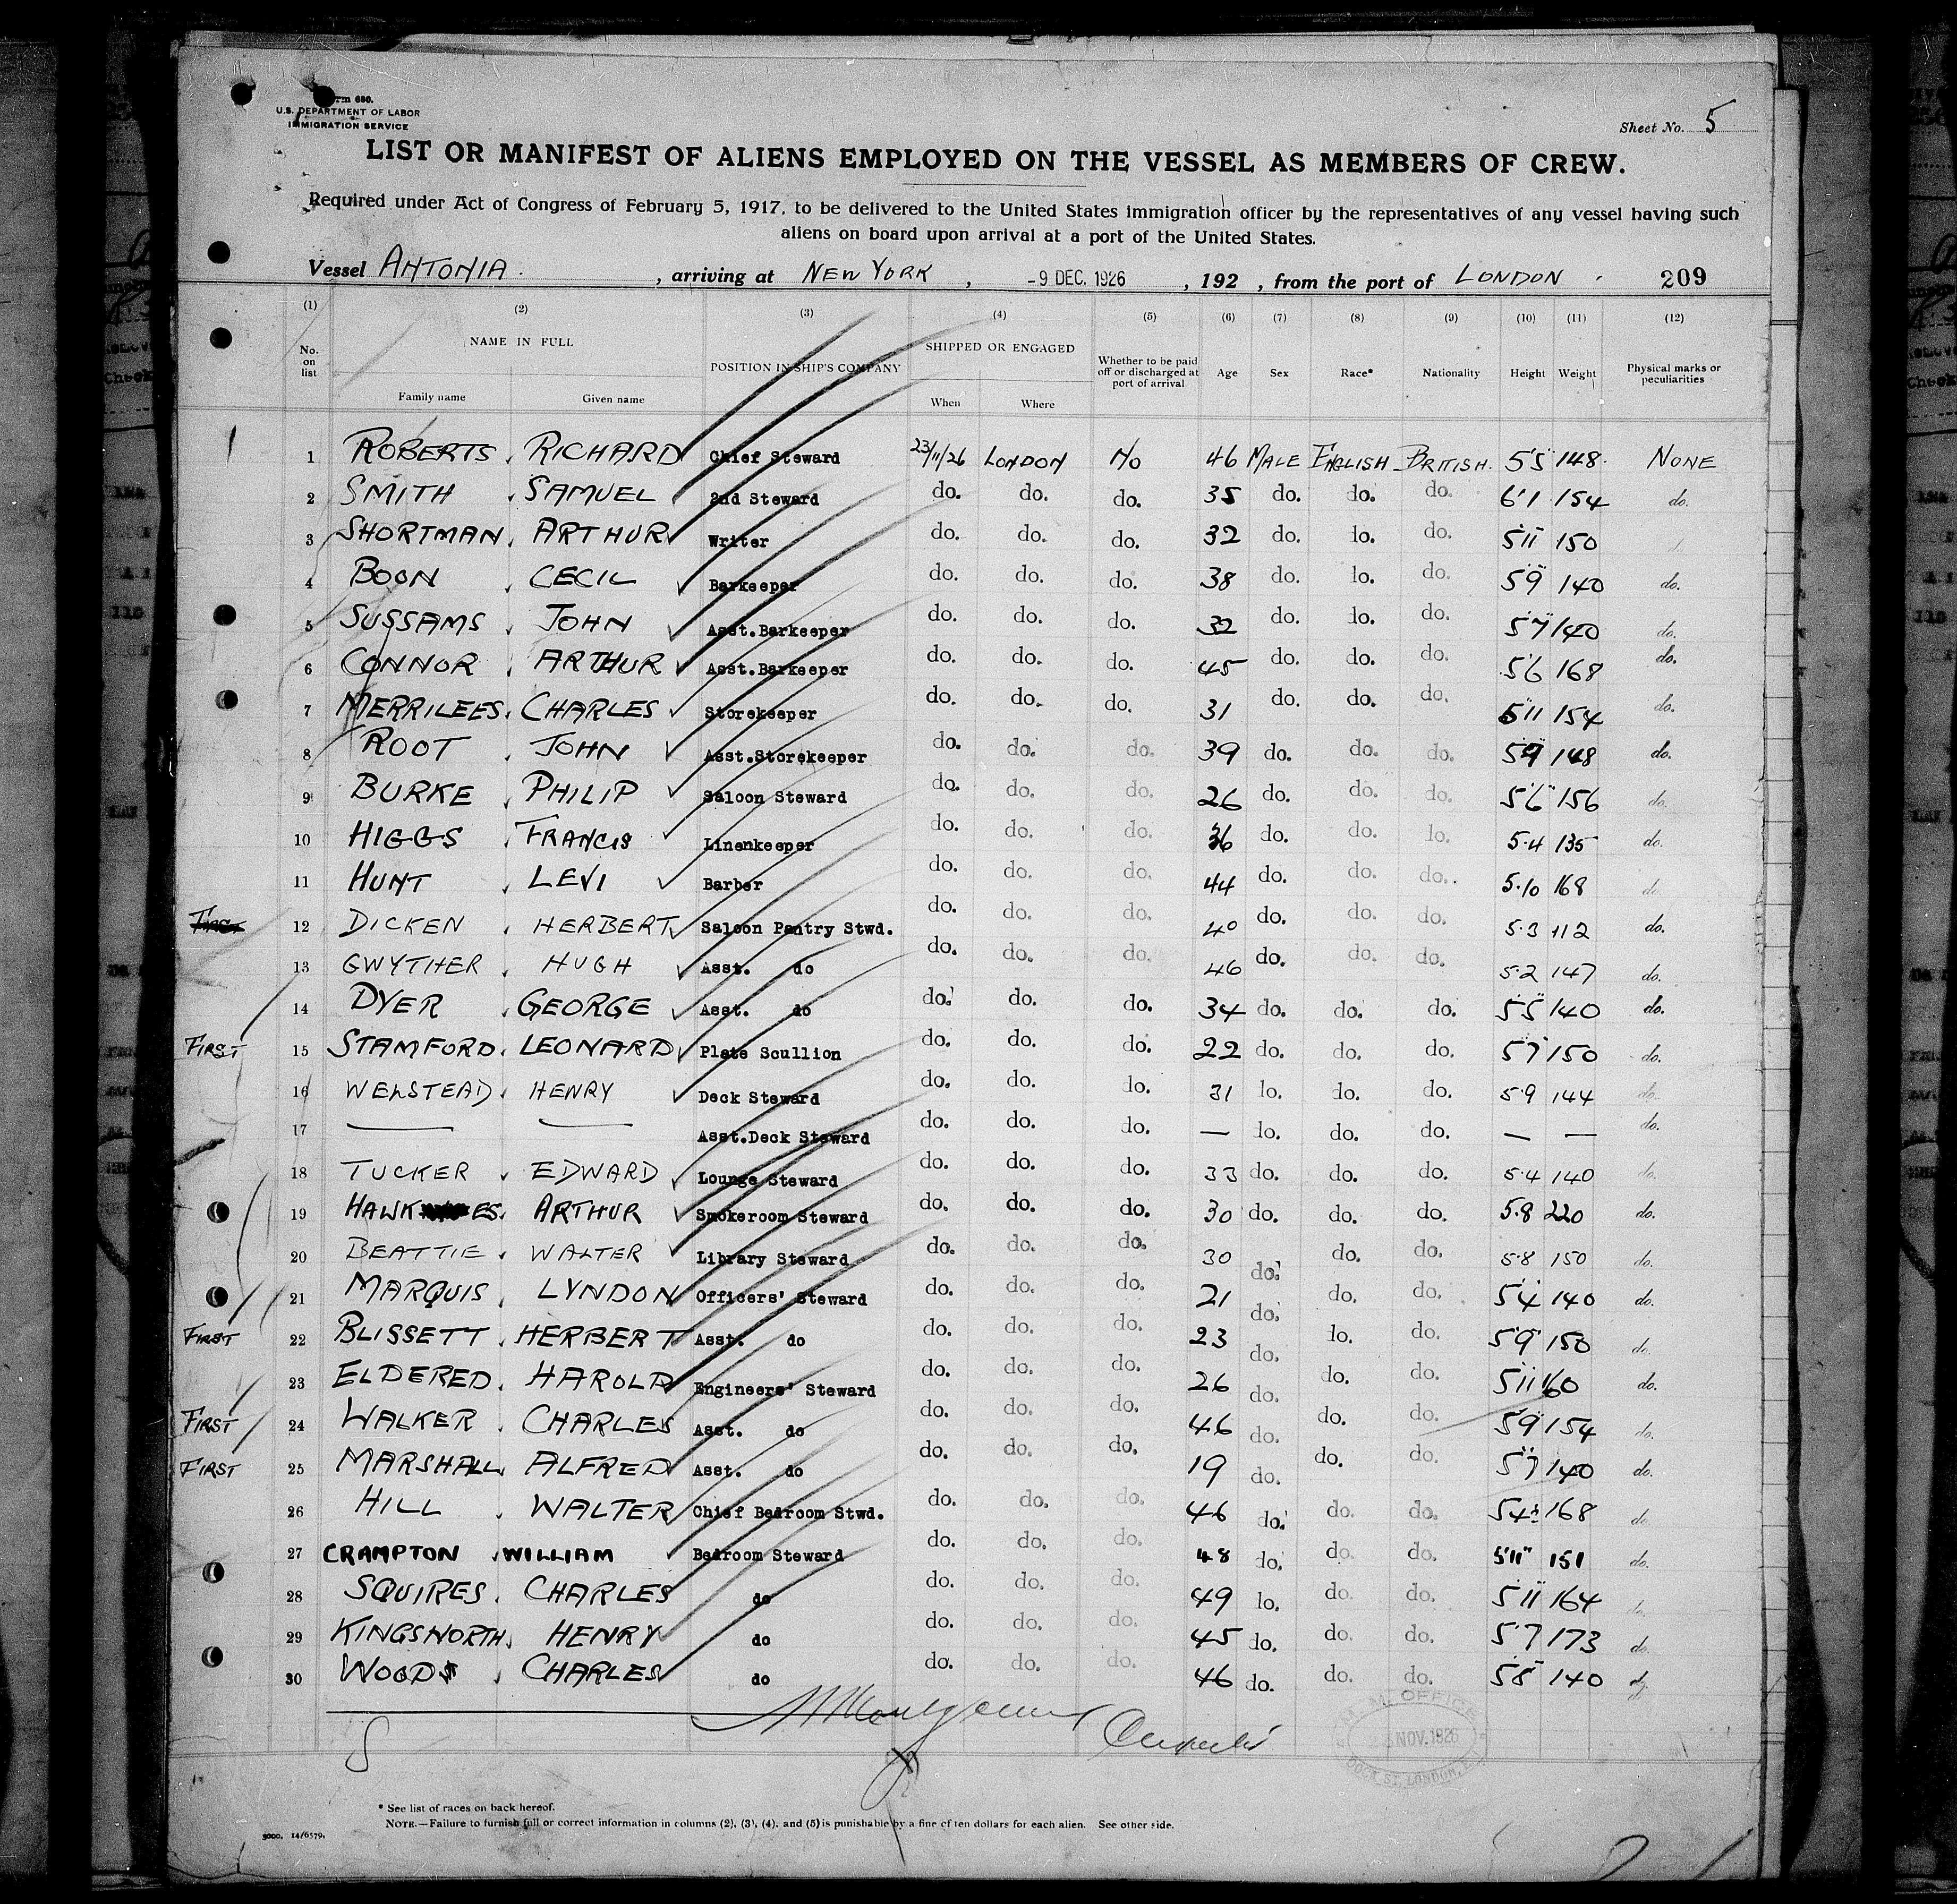 Form 680.
U.S. DEPARTMENT OF LABOR
IMMIGRATION SERVICE
Sheet No. 5
LIST OR MANIFEST OF ALIENS EMPLOYED ON THE VESSEL AS MEMBERS OF CREW.
Required under Act of Congress of February 5, 1917, to be delivered to the United States immigration officer by the representatives of any vessel having such
aliens on board upon arrival at a port of the United States.
Vessel ANTONIA , arriving at NEW YORK , -9 DEC. 1926 , 192 , from the port of LONDON . 209
(1) (2) (3) (4) (5) (6) (7) (8) (9) (10) (11) (12)
No. on list NAME IN FULL Family name Given name POSITION IN SHIP'S COMPANY SHIPPED OR ENGAGED When Where Whether to be paid off or discharged at port of arrival Age Sex Race* Nationality Height Weight Physical marks or peculiarities
1 ROBERTS, RICHARD Chief Steward 23/11/26 LONDON No 46 MALE ENGLISH BRITISH. 5'5 148 NONE
2 SMITH, SAMUEL 2nd Steward do. do. do. 35 do. do. do. 6'1 154 do.
3 SHORTMAN, ARTHUR Writer do. do. do. 32 do. do. do. 5'11 150
4 BOON, CECIL Barkeeper do. do. do. 38 do. do. do. 5'9 140 do.
5 SUSSAMS, JOHN Asst.Barkeeper do. do. do. 32 do. do. do. 5'7 140 do.
6 CONNOR, ARTHUR Asst.Barkeeper do. do. do. 45 do. do. do. 5'6 168 do.
7 MERRILEES, CHARLES Storekeeper do. do. do. 31 do. do. do. 5'11 154 do.
8 ROOT, JOHN Asst.Storekeeper do. do. do. 39 do. do. do. 5'9 148 do.
9 BURKE, PHILIP Saloon Steward do. do. do. 26 do. do. do. 5'6" 156 do.
10 HIGGS, FRANCIS Linenkeeper do. do. do. 36 do. do. do. 5.4 135 do.
11 HUNT, LEVI Barber do. do. do. 44 do. do. do. 5.10 168 do.
FIRST 12 DICKEN, HERBERT Saloon Pantry Stwd. do. do. do. 40 do. do. do. 5.3 112 do.
13 GWYTHER, HUGH Asst. do do. do. do. 46 do. do. do. 5.2 147 do.
14 DYER, GEORGE Asst. do do. do. do. 34 do. do. do. 5'5" 140 do.
FIRST 15 STAMFORD, LEONARD Plate Scullion do. do. do. 22 do. do. do. 5'7" 150 do.
16 WELSTEAD, HENRY Deck Steward do. do. do. 31 do. do. do. 5.9 144 do.
17 — — Asst.Deck Steward do. do. do. — do. do. do. — — do.
18 TUCKER, EDWARD Lounge Steward do. do. do. 33 do. do. do. 5.4 140 do.
19 HAWKES, ARTHUR Smokeroom Steward do. do. do. 30 do. do. do. 5.8 220 do.
20 BEATTIE, WALTER Library Steward do. do. do. 30 do. do. do. 5.8 150 do.
21 MARQUIS, LYNDON Officers' Steward do. do. do. 21 do. do. do. 5'4 140 do.
FIRST 22 BLISSETT, HERBERT Asst. do do. do. do. 23 do. do. do. 5'9" 150 do.
23 ELDERED, HAROLD Engineers' Steward do. do. do. 26 do. do. do. 5'11 160 do.
FIRST 24 WALKER, CHARLES Asst. do do. do. do. 46 do. do. do. 5'9" 154 do.
FIRST 25 MARSHALL, ALFRED Asst. do do. do. do. 19 do. do. do. 5'7" 140 do.
26 HILL, WALTER Chief Bedroom Stwd. do. do. do. 46 do. do. do. 5'4½ 168 do.
27 CRAMPTON, WILLIAM Bedroom Steward do. do. do. 48 do. do. do. 5'11" 151 do.
28 SQUIRES, CHARLES do do. do. do. 49 do. do. do. 5'11" 164 do.
29 KINGSNORTH, HENRY do do. do. do. 45 do. do. do. 5.7 173 do.
30 WOODS, CHARLES do do. do. do. 46 do. do. do. 5'8" 140 do.
OFFICE
NOV. 1926
DOCK ST. LONDON, E.
* See list of races on back hereof.
NOTE.—Failure to furnish full or correct information in columns (2), (3), (4), and (5) is punishable by a fine of ten dollars for each alien. See other side.
3000. 14/6579.